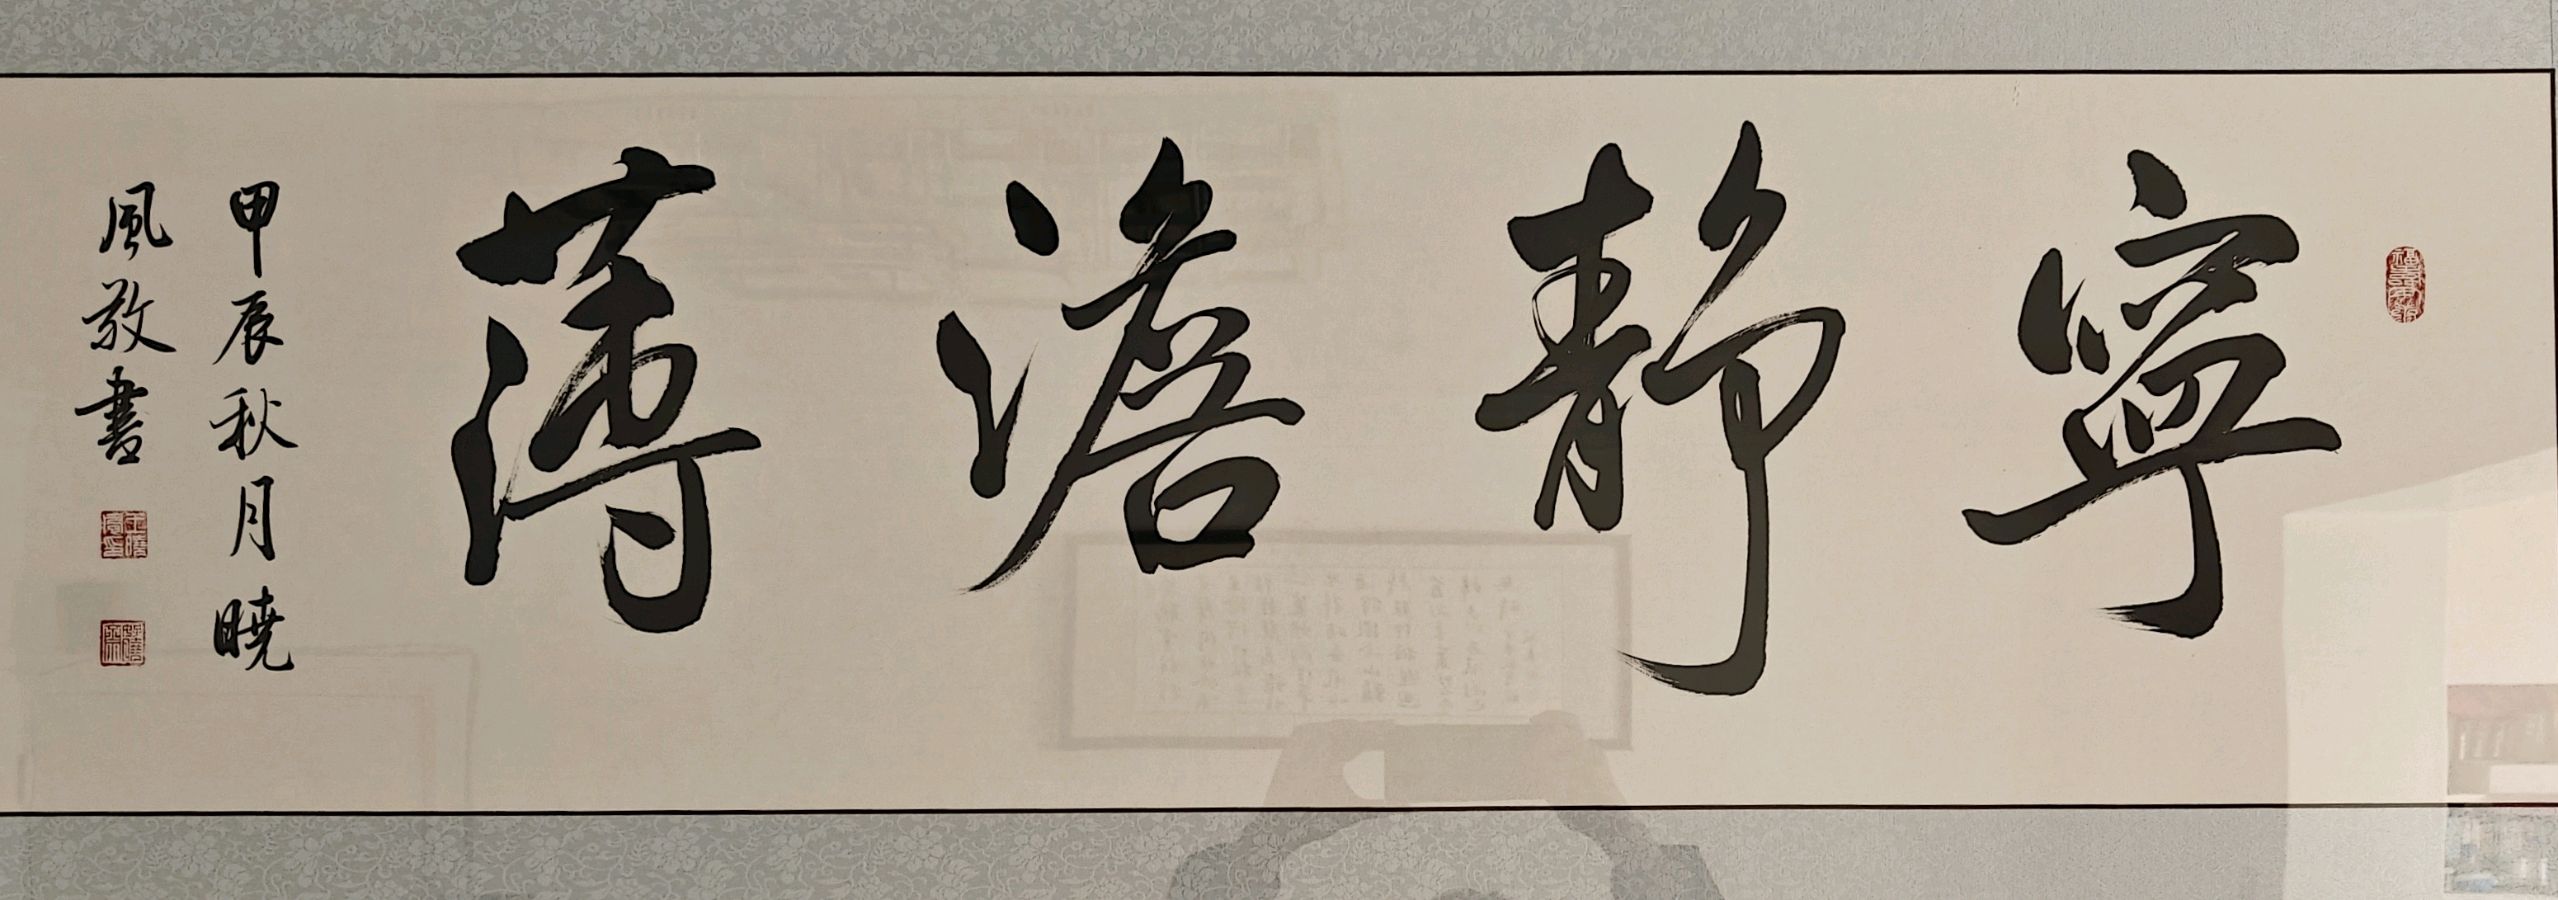 寧靜澹薄
甲辰秋月曉
風敬書